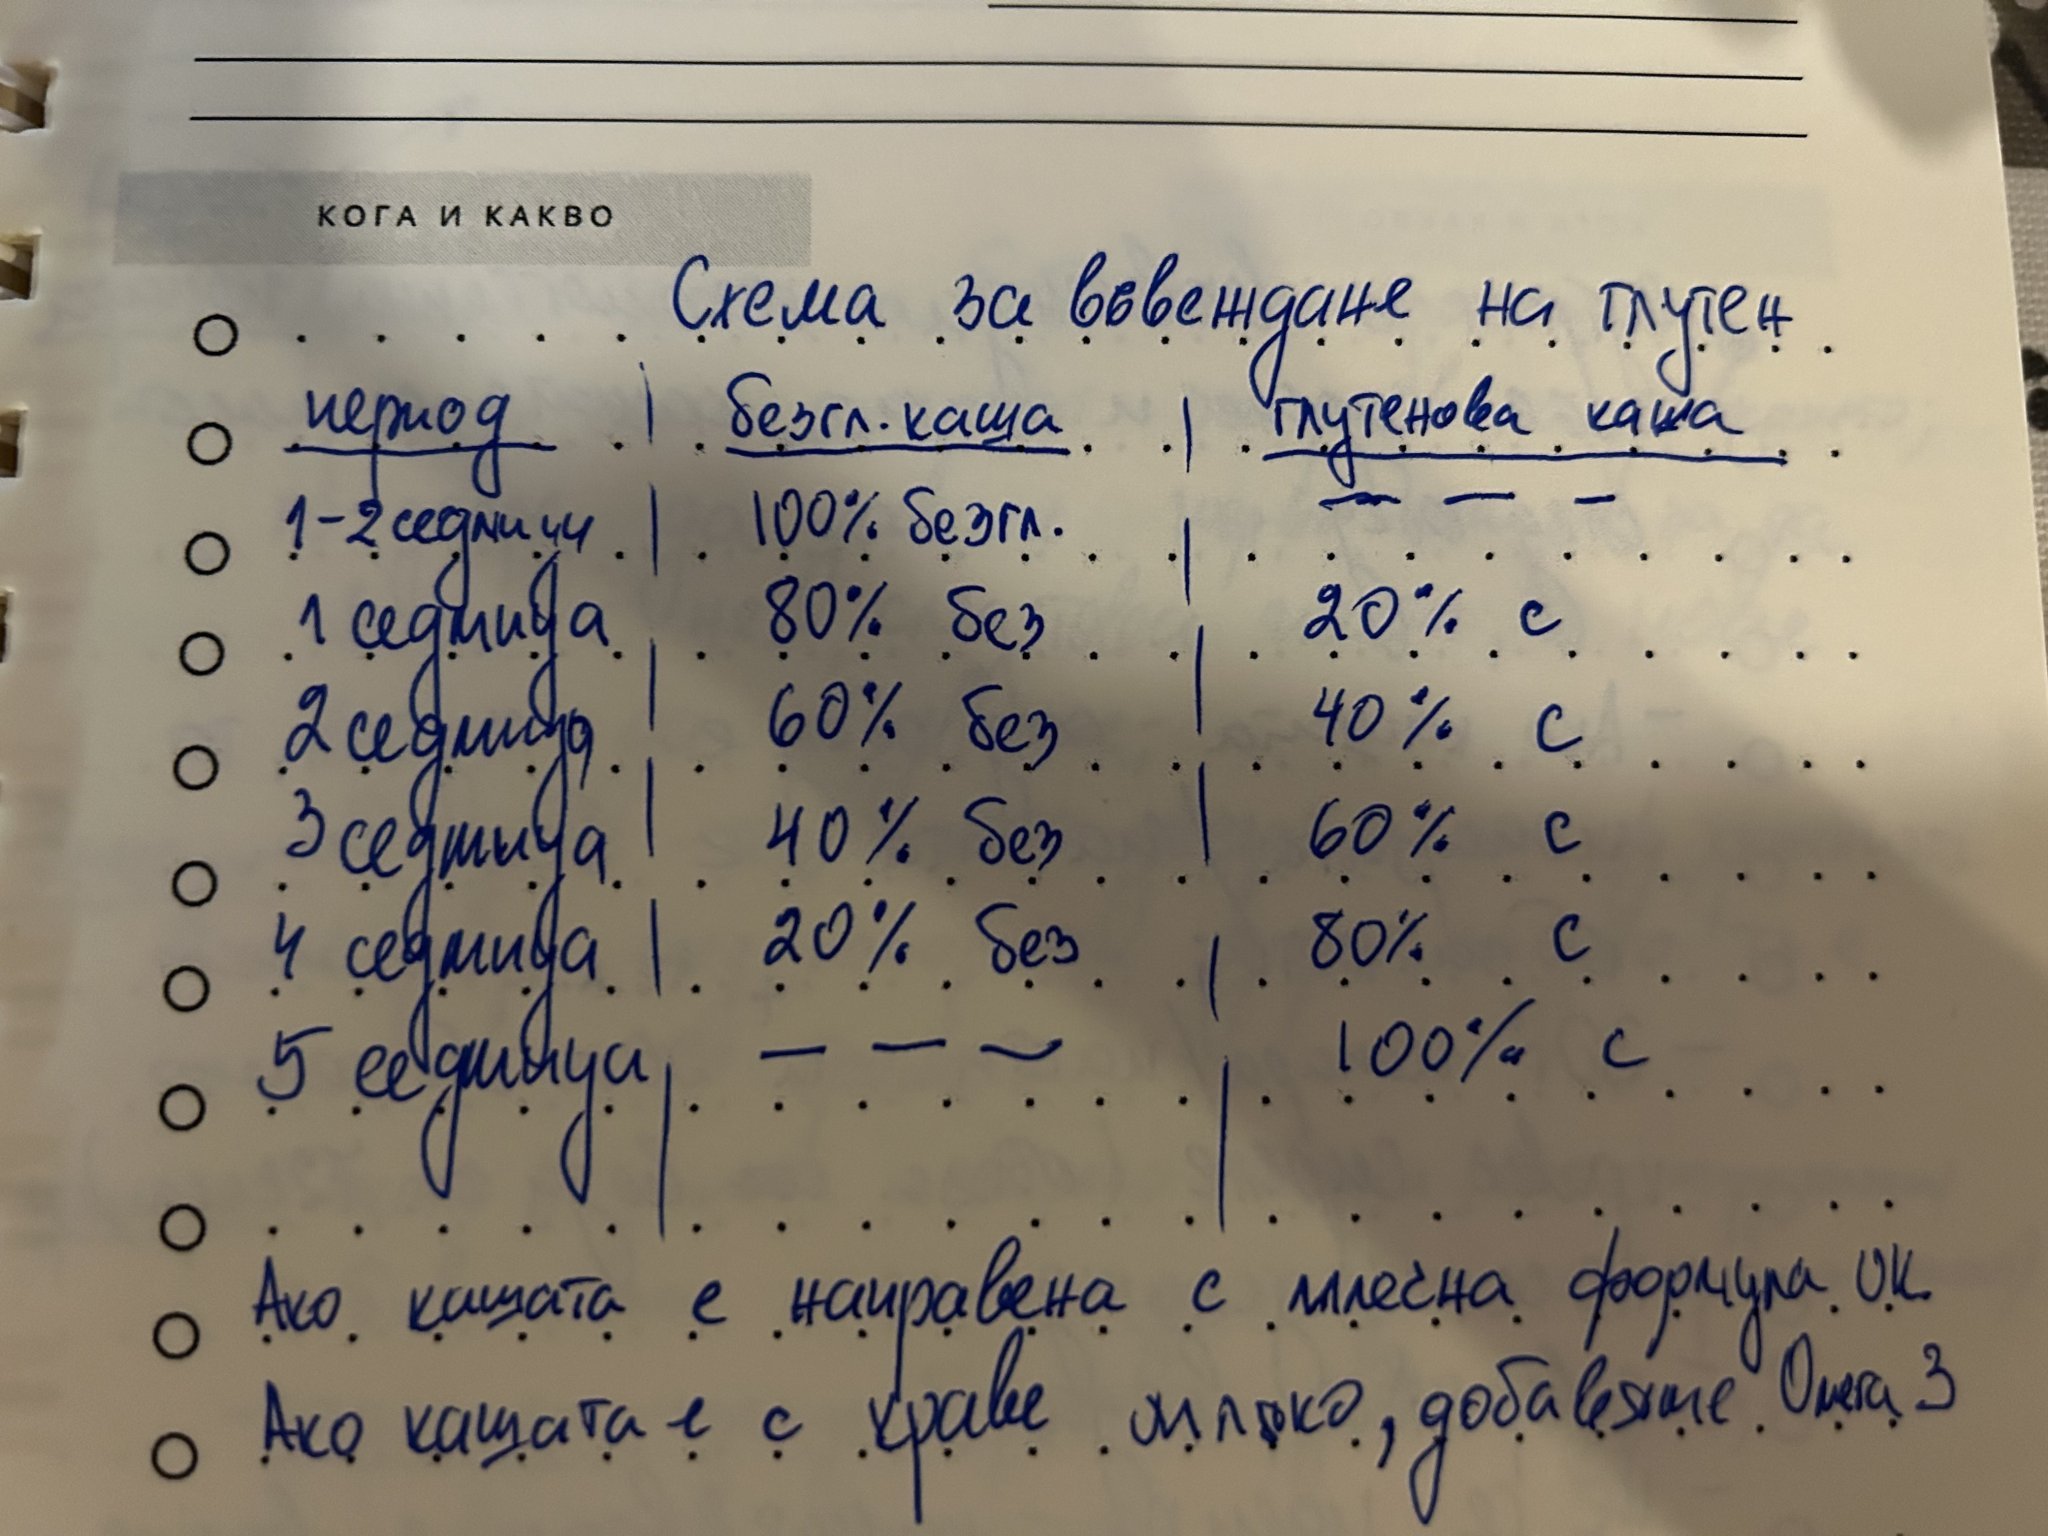 КОГА И КАКВО
Схема за въвеждане на глутен
период | безгл. каша | глутенова каша
1-2 седмици | 100% безгл. | — — –
1 седмица | 80% без | 20% с
2 седмица | 60% без | 40% с
3 седмица | 40% без | 60% с
4 седмица | 20% без | 80% с
5 седмица | — — — | 100% с
Ако кашата е направена с млечна формула ок
Ако кашата е с краве мляко, добавяме Омега 3